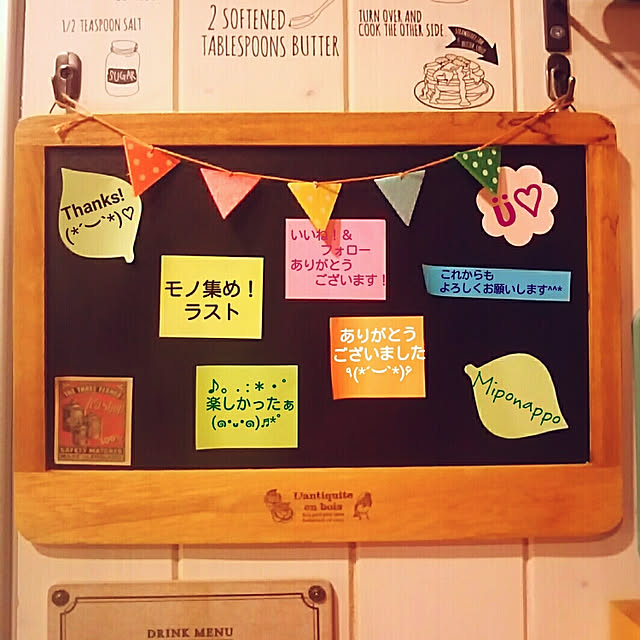 1/2 TEASPOON SALT
SUGAR
2 SOFTENED
TABLESPOONS BUTTER
TURN OVER AND
COOK THE OTHER SIDE
Thanks!
(*´︶`*)♡
モノ集め！
ラスト
いいね！&
フォロー
ありがとう
ございます！
ü♡
これからも
よろしくお願いします^^*
ありがとう
ございました
٩(*´︶`*)۶
♪。.:＊・゜
楽しかったぁ
(๑•ᴗ•๑)♬*゜
Miponappo
THE THREE
L'antiquite
en bois
DRINK MENU